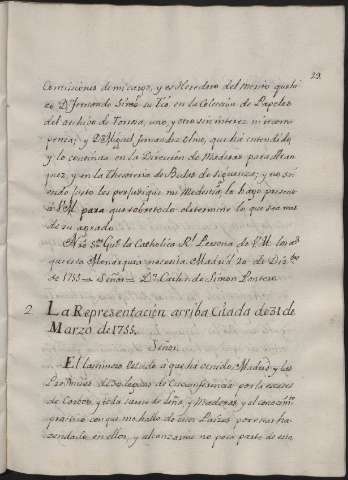 29.
Comisiones de mi cargo, y es Heredero del merito que ha
Dn. Fernando Simo su Tio en la Coleccion de Papeles
del archivo de Toresa, uno, y otro sin interes ni recom
pensa; y Dn. Miguel Fernandez Olmo, que ha entendido,
y lo continua en la Direccion de Maderas para Aran
juez, y en la Thesoreria de Bulas de Siguenza; y no si
endo justo les perjudique mi Modestia lo hago present
a V.M. para que sobre todo determine lo que sea mas
de su agrado.
Nro. Sor. Gue. la Catholica Rl. Persona de V.M. los as
que esta Monarquia necesita. Madrid 20 de Dizre.
de 1755 = Señor = Dn. Carlos de Simon Pontero.
2 La Representacion arriba Citada de 31 de
Marzo de 1755.
Señor.
El lastimoso estado a que ha venido Madrid y las
Provincias de 30 leguas de Circunferencia por la escases
de Carbon, y toda suerte de Leña, y Maderas, y el conocim.
practico con que me hallo de estos Paises por estar ha
zendado en ellos, y alcanzarme no poca parte de esta